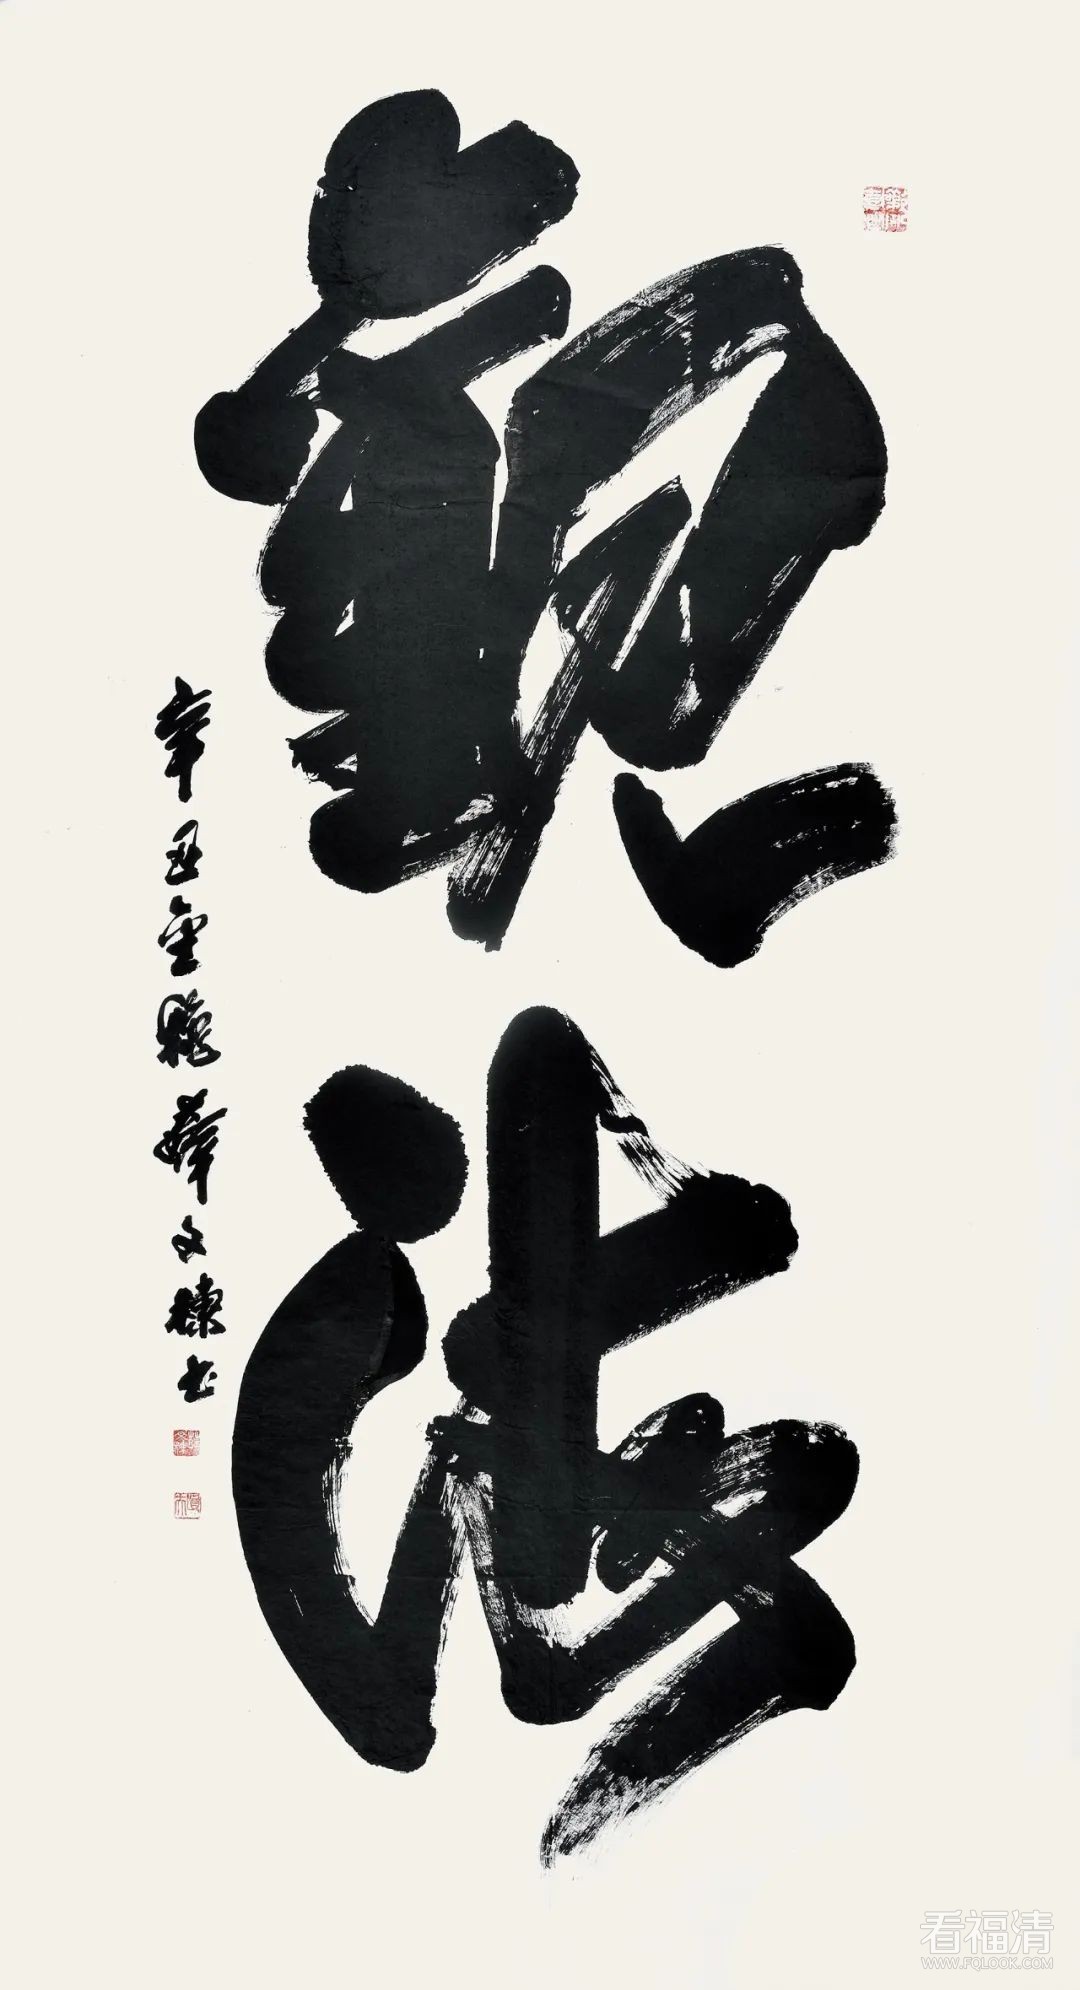 觀海
辛丑金秋薛文棟书
看福清
WWW.FQLOOK.COM